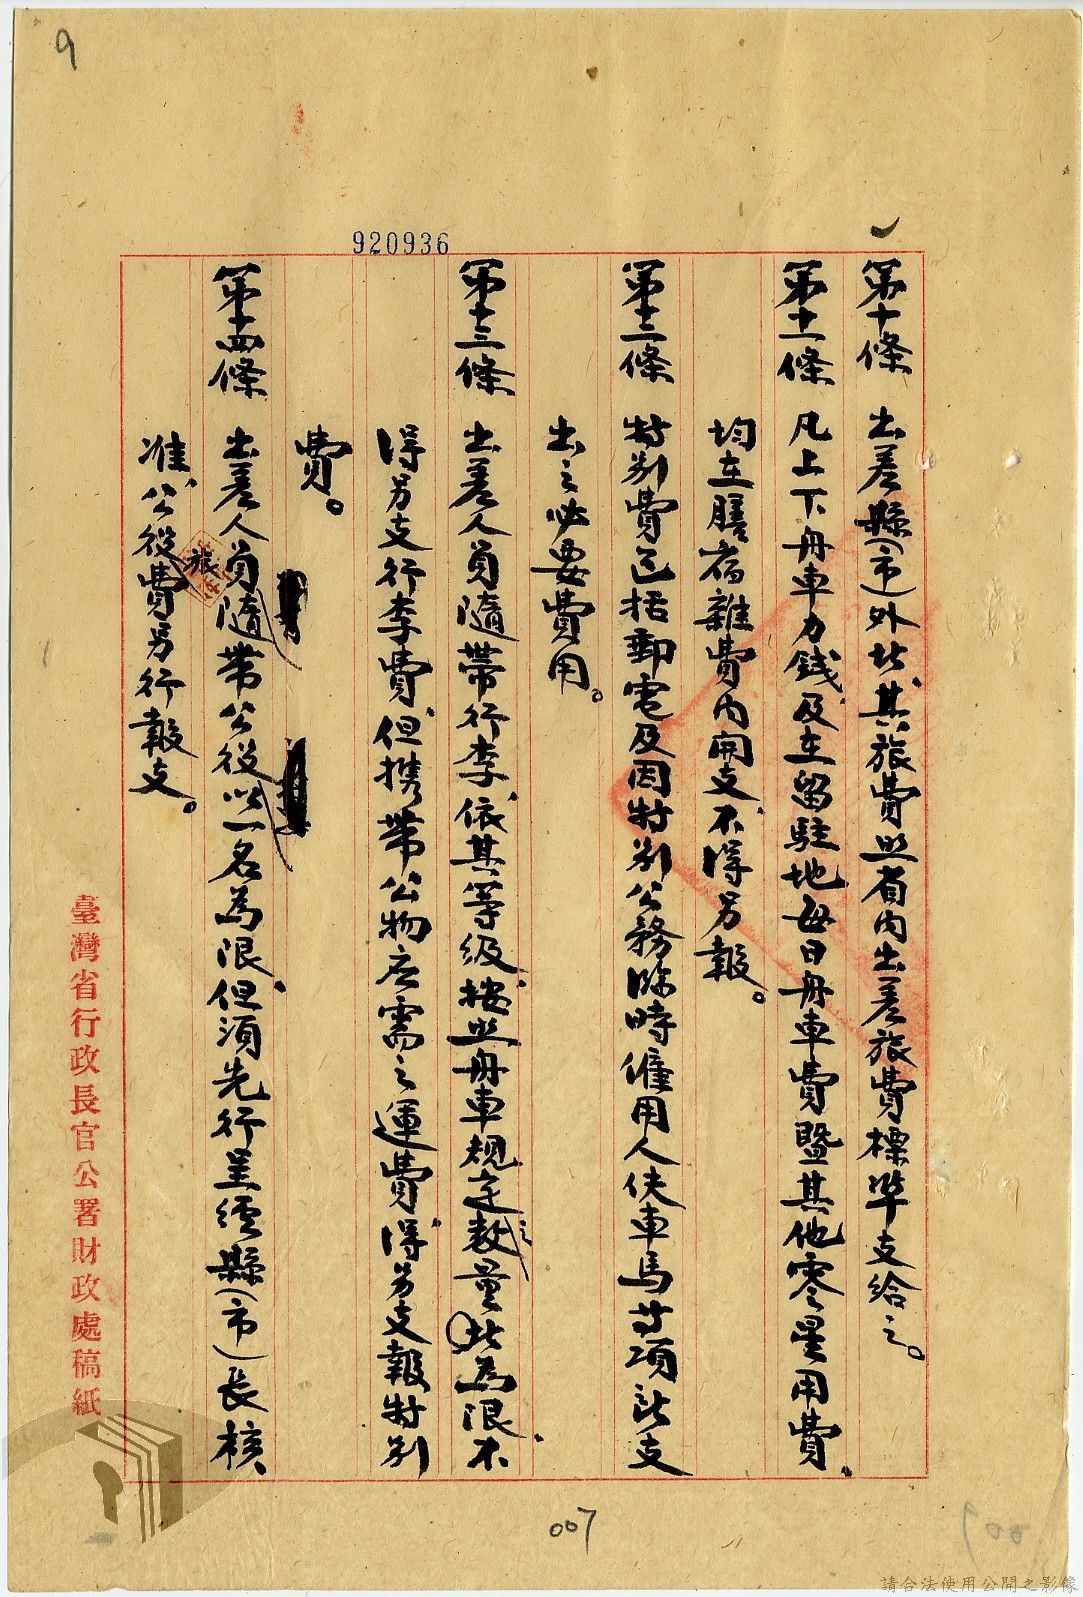 9
920936
第十條 出差縣(市)外者,其旅費照省內出差旅費標準支給之。
第十一條 凡上下舟車力錢及在留駐地每日舟車費暨其他零星用費,
均在膳宿雜費內開支,不得另報。
第十二條 特別費包括郵電及因特別公務臨時僱用人伕車馬等項所支
出之必要費用。
第十三條 出差人員隨帶行李,依其等級,按照舟車規定數量者為限,不
之
得另支行李費,但携帶公物应需之運費,得另支報特別
費。
第十四條 出差人員隨帶公役以一名為限,但須先行呈經縣(市)長核
旅
准,公役費另行報支。
臺灣省行政長官公署財政處稿紙
007
請合法使用公開之影像